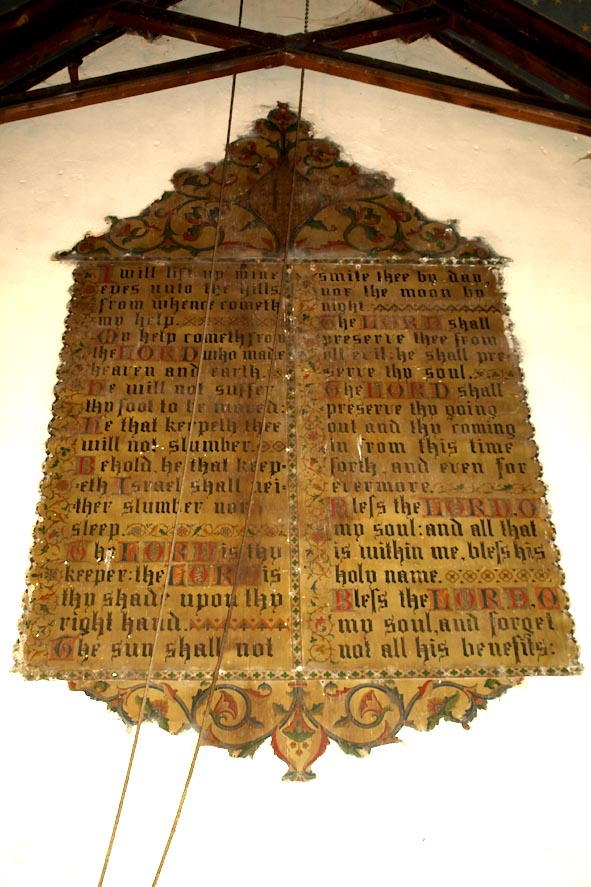 I will lift up mine
eyes unto the hills
from whence cometh
my help.
My help cometh from
the LORD who made
heaven and earth.
He will not suffer
thy foot to be moved:
He that keepeth thee
will not slumber.
Behold, he that keep-
eth Israel shall nei-
ther slumber nor
sleep.
The LORD is thy
keeper: the LORD is
thy shade upon thy
right hand.
The sun shall not
smite thee by day
nor the moon by
night.
The LORD shall
preserve thee from
all evil: he shall pre-
serve thy soul.
The LORD shall
preserve thy going
out and thy coming
in from this time
forth, and even for
evermore.
Bless the LORD, O
my soul: and all that
is within me, bless his
holy name.
Bless the LORD, O
my soul, and forget
not all his benefits: